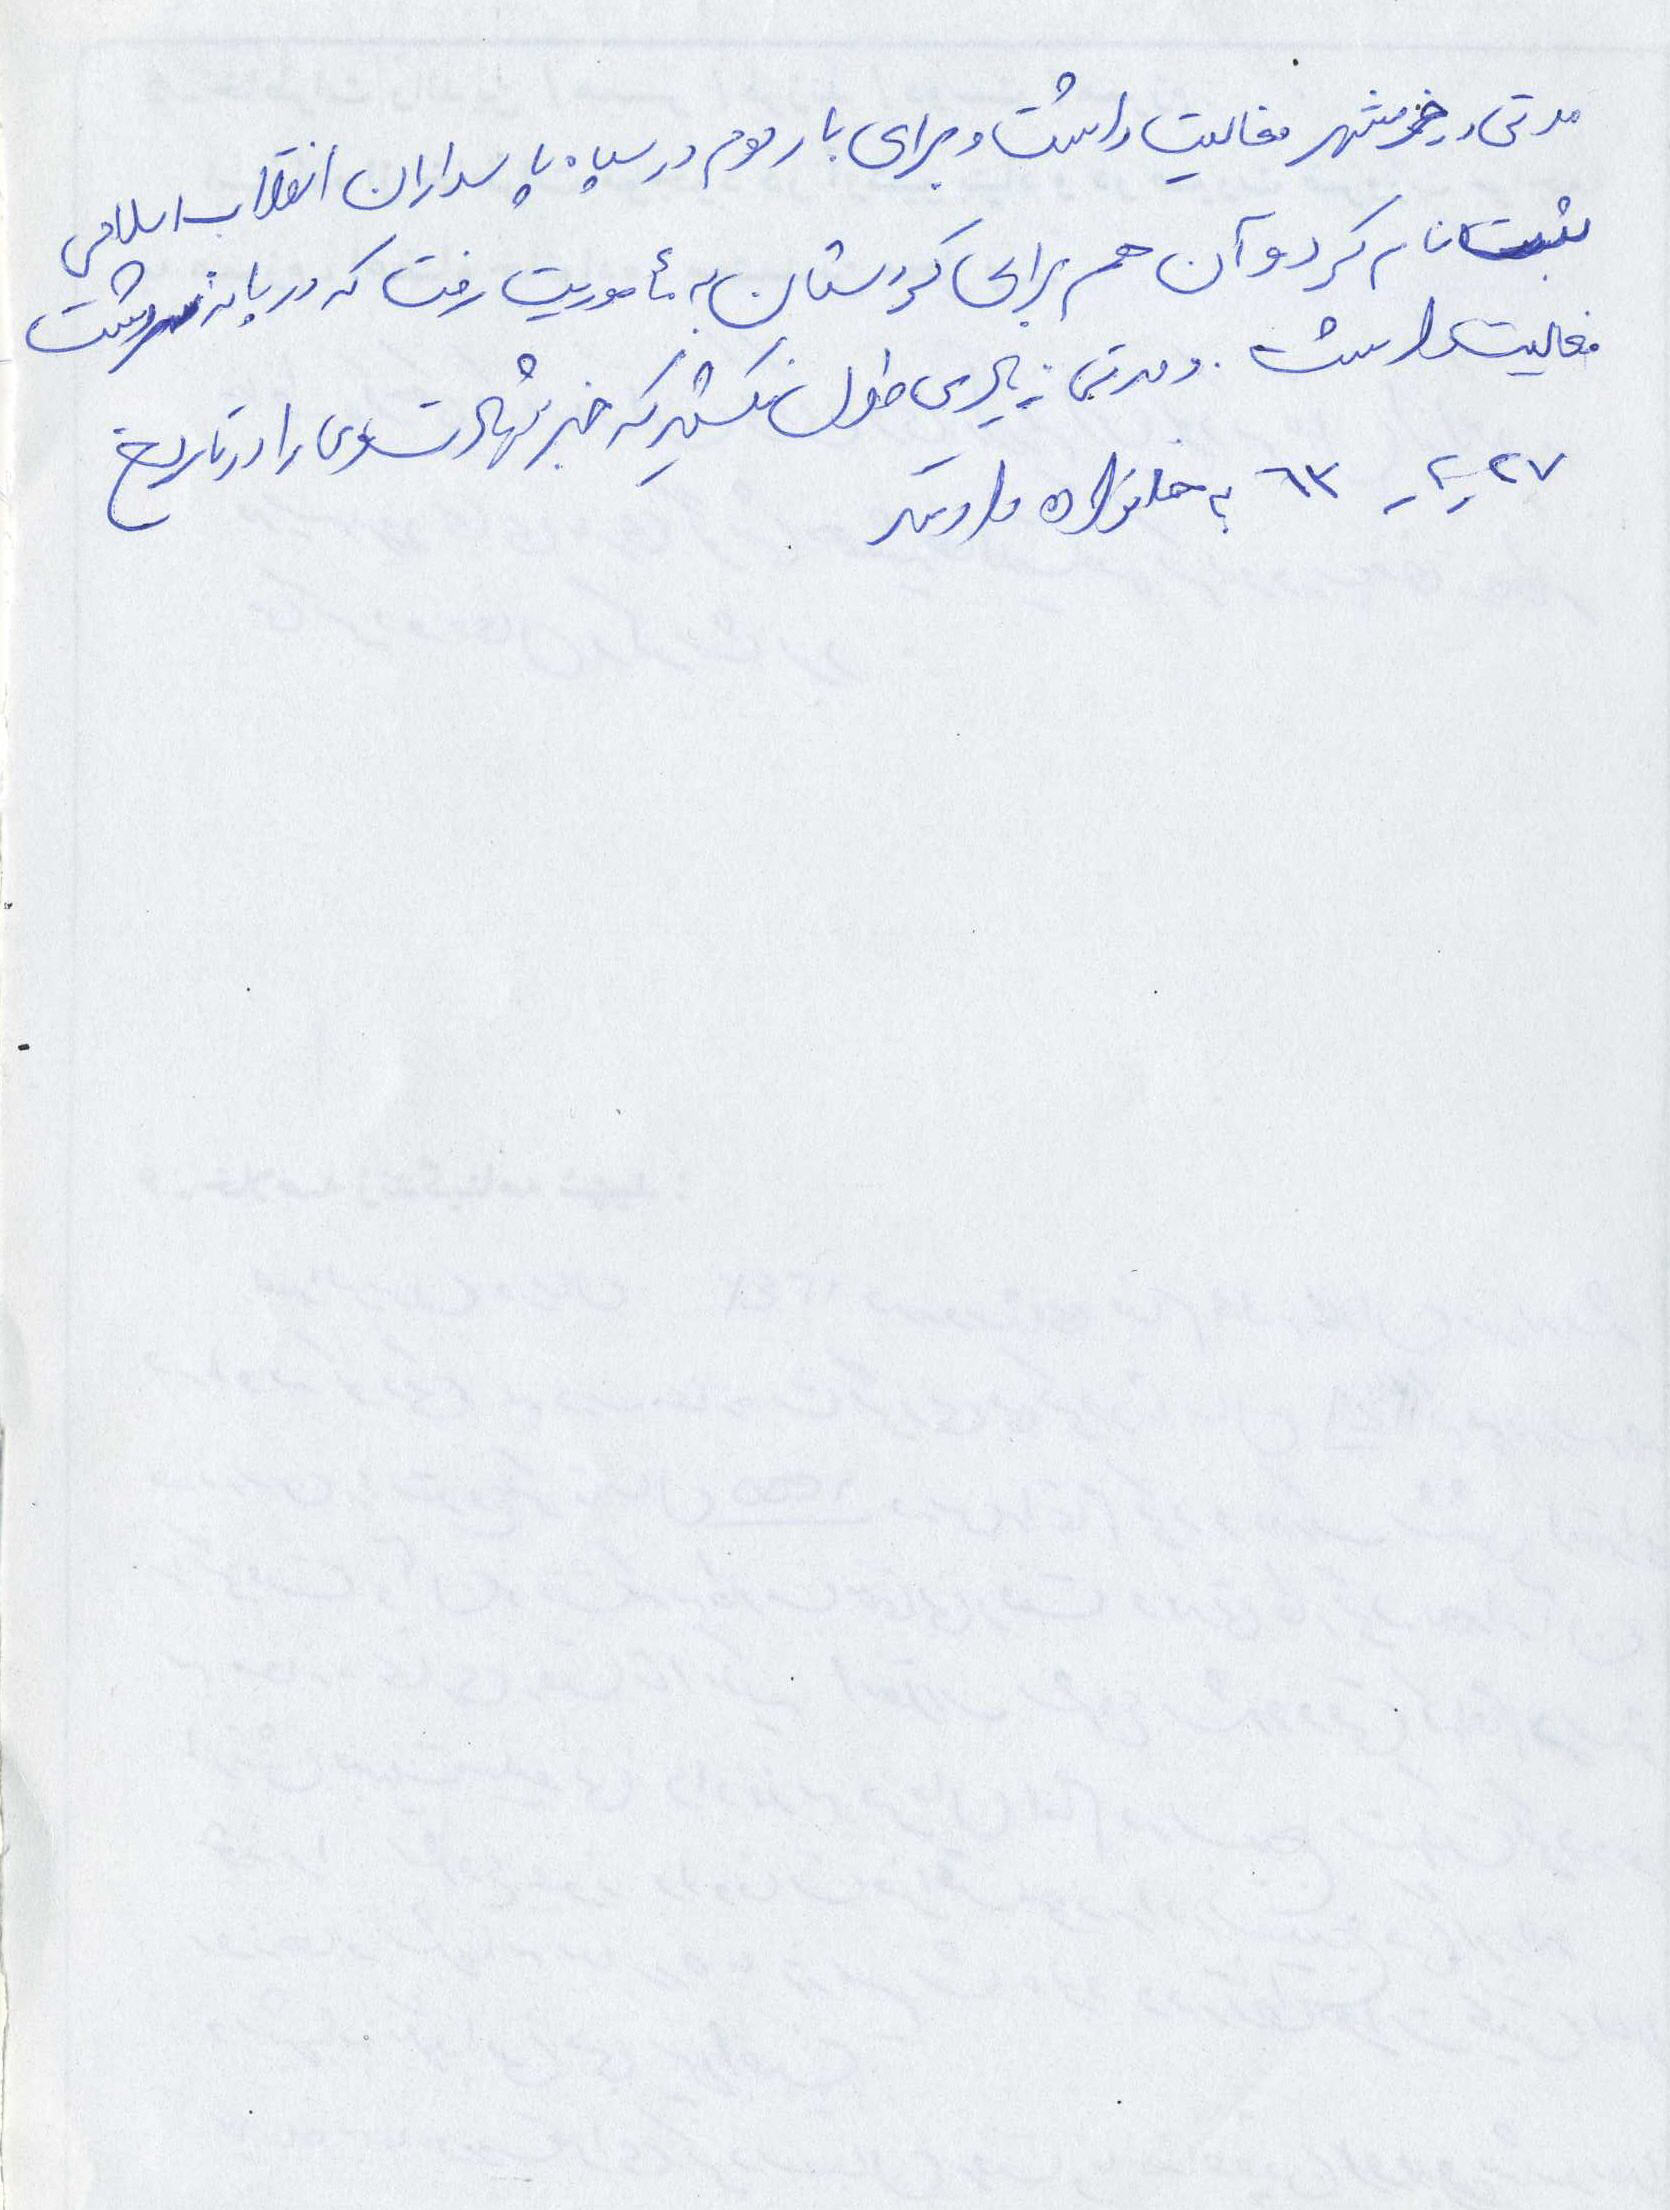 مدتی در خرمشهر فعالیت داشت و برای بار دوم در سپاه پاسداران انقلاب اسلامی
ثبت نام کرد و آن هم برای کردستان به مأموریت رفت که در بانه سردشت
فعالیت داشت . و مدتی زیادی طول نکشید که خبر شهادت وی را در تاریخ
۲۷ـ۲ـ ۶۳ به خانواده دادند